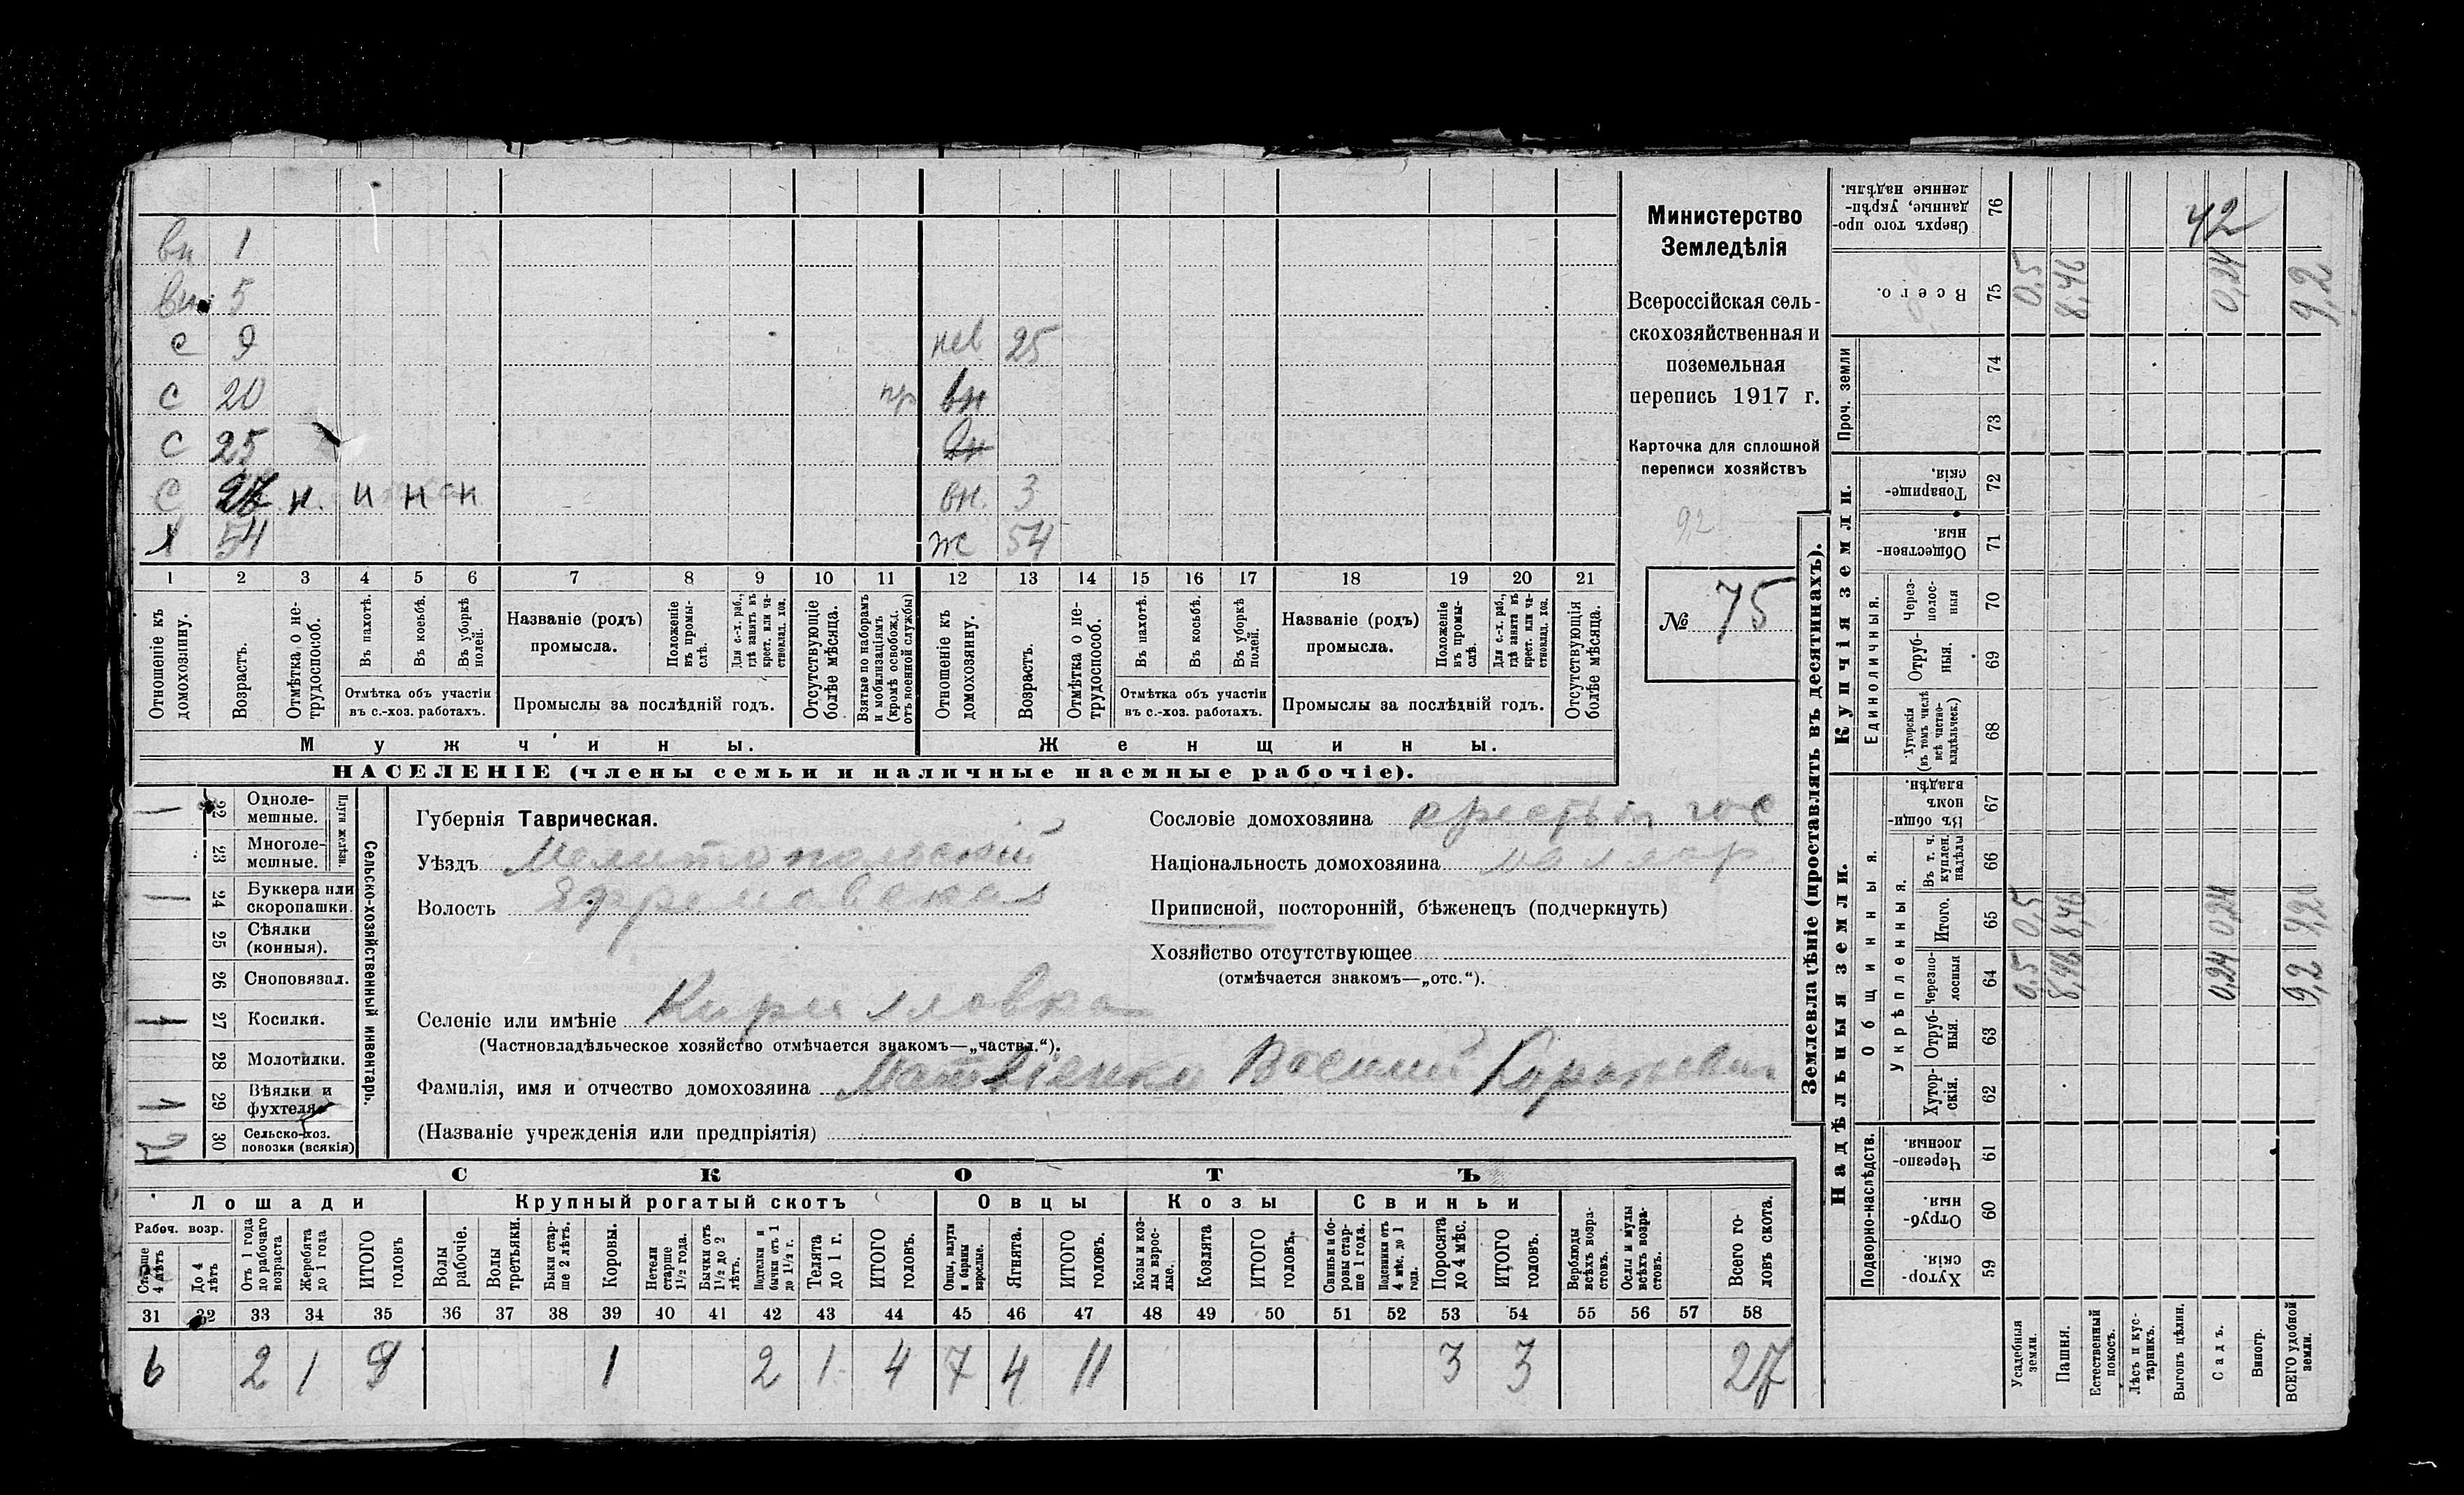 вн 1
вн 5
с 9 нев 25
с 20 пр вн
с 25 вн
с н. н н н вн. 3
х 54 ж 54
1 2 3 4 5 6 7 8 9 10 11 12 13 14 15 16 17 18 19 20 21
Отношеніе къ домохозяину.
Возрастъ.
Отмѣтка о нетрудоспособ.
Въ пахотѣ.
Въ косьбѣ.
Въ уборкѣ полей.
Отмѣтка объ участіи въ с.-хоз. работахъ.
Названіе (родъ) промысла.
Положеніе въ промыслѣ.
Для с.-х. раб., гдѣ занятъ въ крест. или частновлад. хоз.
Промыслы за послѣдній годъ.
Отсутствующіе болѣе мѣсяца.
Взятые по наборамъ и мобилизаціямъ (кромѣ освобожд. отъ военной службы)
Отношеніе къ домохозяину.
Возрастъ.
Отмѣтка о нетрудоспособ.
Въ пахотѣ.
Въ косьбѣ.
Въ уборкѣ полей.
Отмѣтка объ участіи въ с.-хоз. работахъ.
Названіе (родъ) промысла.
Положеніе въ промыслѣ.
Для с.-х. раб., гдѣ занята въ крест. или частновлад. хоз.
Промыслы за послѣдній годъ.
Отсутствующія болѣе мѣсяца.
Мужчины. Женщины.
НАСЕЛЕНІЕ (члены семьи и наличные наемные рабочіе).
Министерство
Земледѣлія
Всероссійская сель-
скохозяйственная и
поземельная
перепись 1917 г.
Карточка для сплошной
переписи хозяйствъ
9,2
№ 75
Сельско-хозяйственный инвентарь.
Плуги желѣзн.
22 Одноле-
мешные.
23 Многоле-
мешные.
24 Буккера или
скоропашки.
25 Сѣялки
(конныя).
26 Сноповязал.
27 Косилки.
28 Молотилки.
29 Вѣялки и
фухтеля.
30 Сельско-хоз.
повозки (всякія)
Губернія Таврическая.
Уѣздъ Мелитопольскій
Волость Ефремовская
Селеніе или имѣніе Кирилловка
(Частновладѣльческое хозяйство отмѣчается знакомъ—„частвл.“).
Фамилія, имя и отчество домохозяина Матвіенко Василий
(Названіе учрежденія или предпріятія)
Сословіе домохозяина
Національность домохозяина малор.
Приписной, посторонній, бѣженецъ (подчеркнуть)
Хозяйство отсутствующее
(отмѣчается знакомъ—„отс.“).
СКОТЪ
Лошади Крупный рогатый скотъ Овцы Козы Свиньи
Рабоч. возр.
Старше 4 лѣтъ
До 4 лѣтъ
Отъ 1 года до рабочаго возраста
Жеребята до 1 года
ИТОГО головъ
Волы рабочіе.
Волы третьяки.
Быки старше 2 лѣтъ.
Коровы.
Нетели старше 1½ года.
Бычки отъ 1½ до 2 лѣтъ.
Подтелки и бычки отъ 1 до 1½ г.
Телята до 1 г.
ИТОГО головъ.
Овцы, валухи и бараны взрослые.
Ягнята.
ИТОГО головъ.
Козы и козлы взрослые.
Козлята
ИТОГО головъ.
Свиньи и боровы старше 1 года.
Подсвинки отъ 4 мѣс. до 1 года.
Поросята до 4 мѣс.
ИТОГО головъ.
Верблюды всѣхъ возрастовъ.
Ослы и мулы всѣхъ возрастовъ.
Всего головъ скота.
31 32 33 34 35 36 37 38 39 40 41 42 43 44 45 46 47 48 49 50 51 52 53 54 55 56 57 58
6 2 1 9 1 2 1 4 7 4 11 3 3 27
Землевладѣніе (проставлять въ десятинахъ).
Надѣльныя земли. Купчія земли. Проч. земли
Подворно-наслѣдств.
Общинныя.
Укрѣпленныя.
Единоличныя.
Хуторскія. 59
Отрубныя. 60
Черезполосныя 61
Хуторскія. 62
Отрубныя. 63
Черезполосныя 64
Итого. 65
Въ т. ч. куплен. надѣлы 66
Въ общинномъ владѣн. 67
Хуторскія (въ томъ числѣ всѣ частновладѣльческ.) 68
Отрубныя. 69
Черезполосныя 70
Общественныя. 71
Товарищескія. 72
73
74
Всего. 75
Сверхъ того проданные, укрѣпленные надѣлы. 76
Усадебныя земли. 0,5 0,5 0,5
Пашня. 8,46 8,46 8,46
Естественный покосъ.
Лѣсъ и кустарникъ.
Выгонъ цѣлин.
Садъ. 0,24 0,24 0,24
Виногр.
ВСЕГО удобной земли. 9,2 9,2 9,2
42